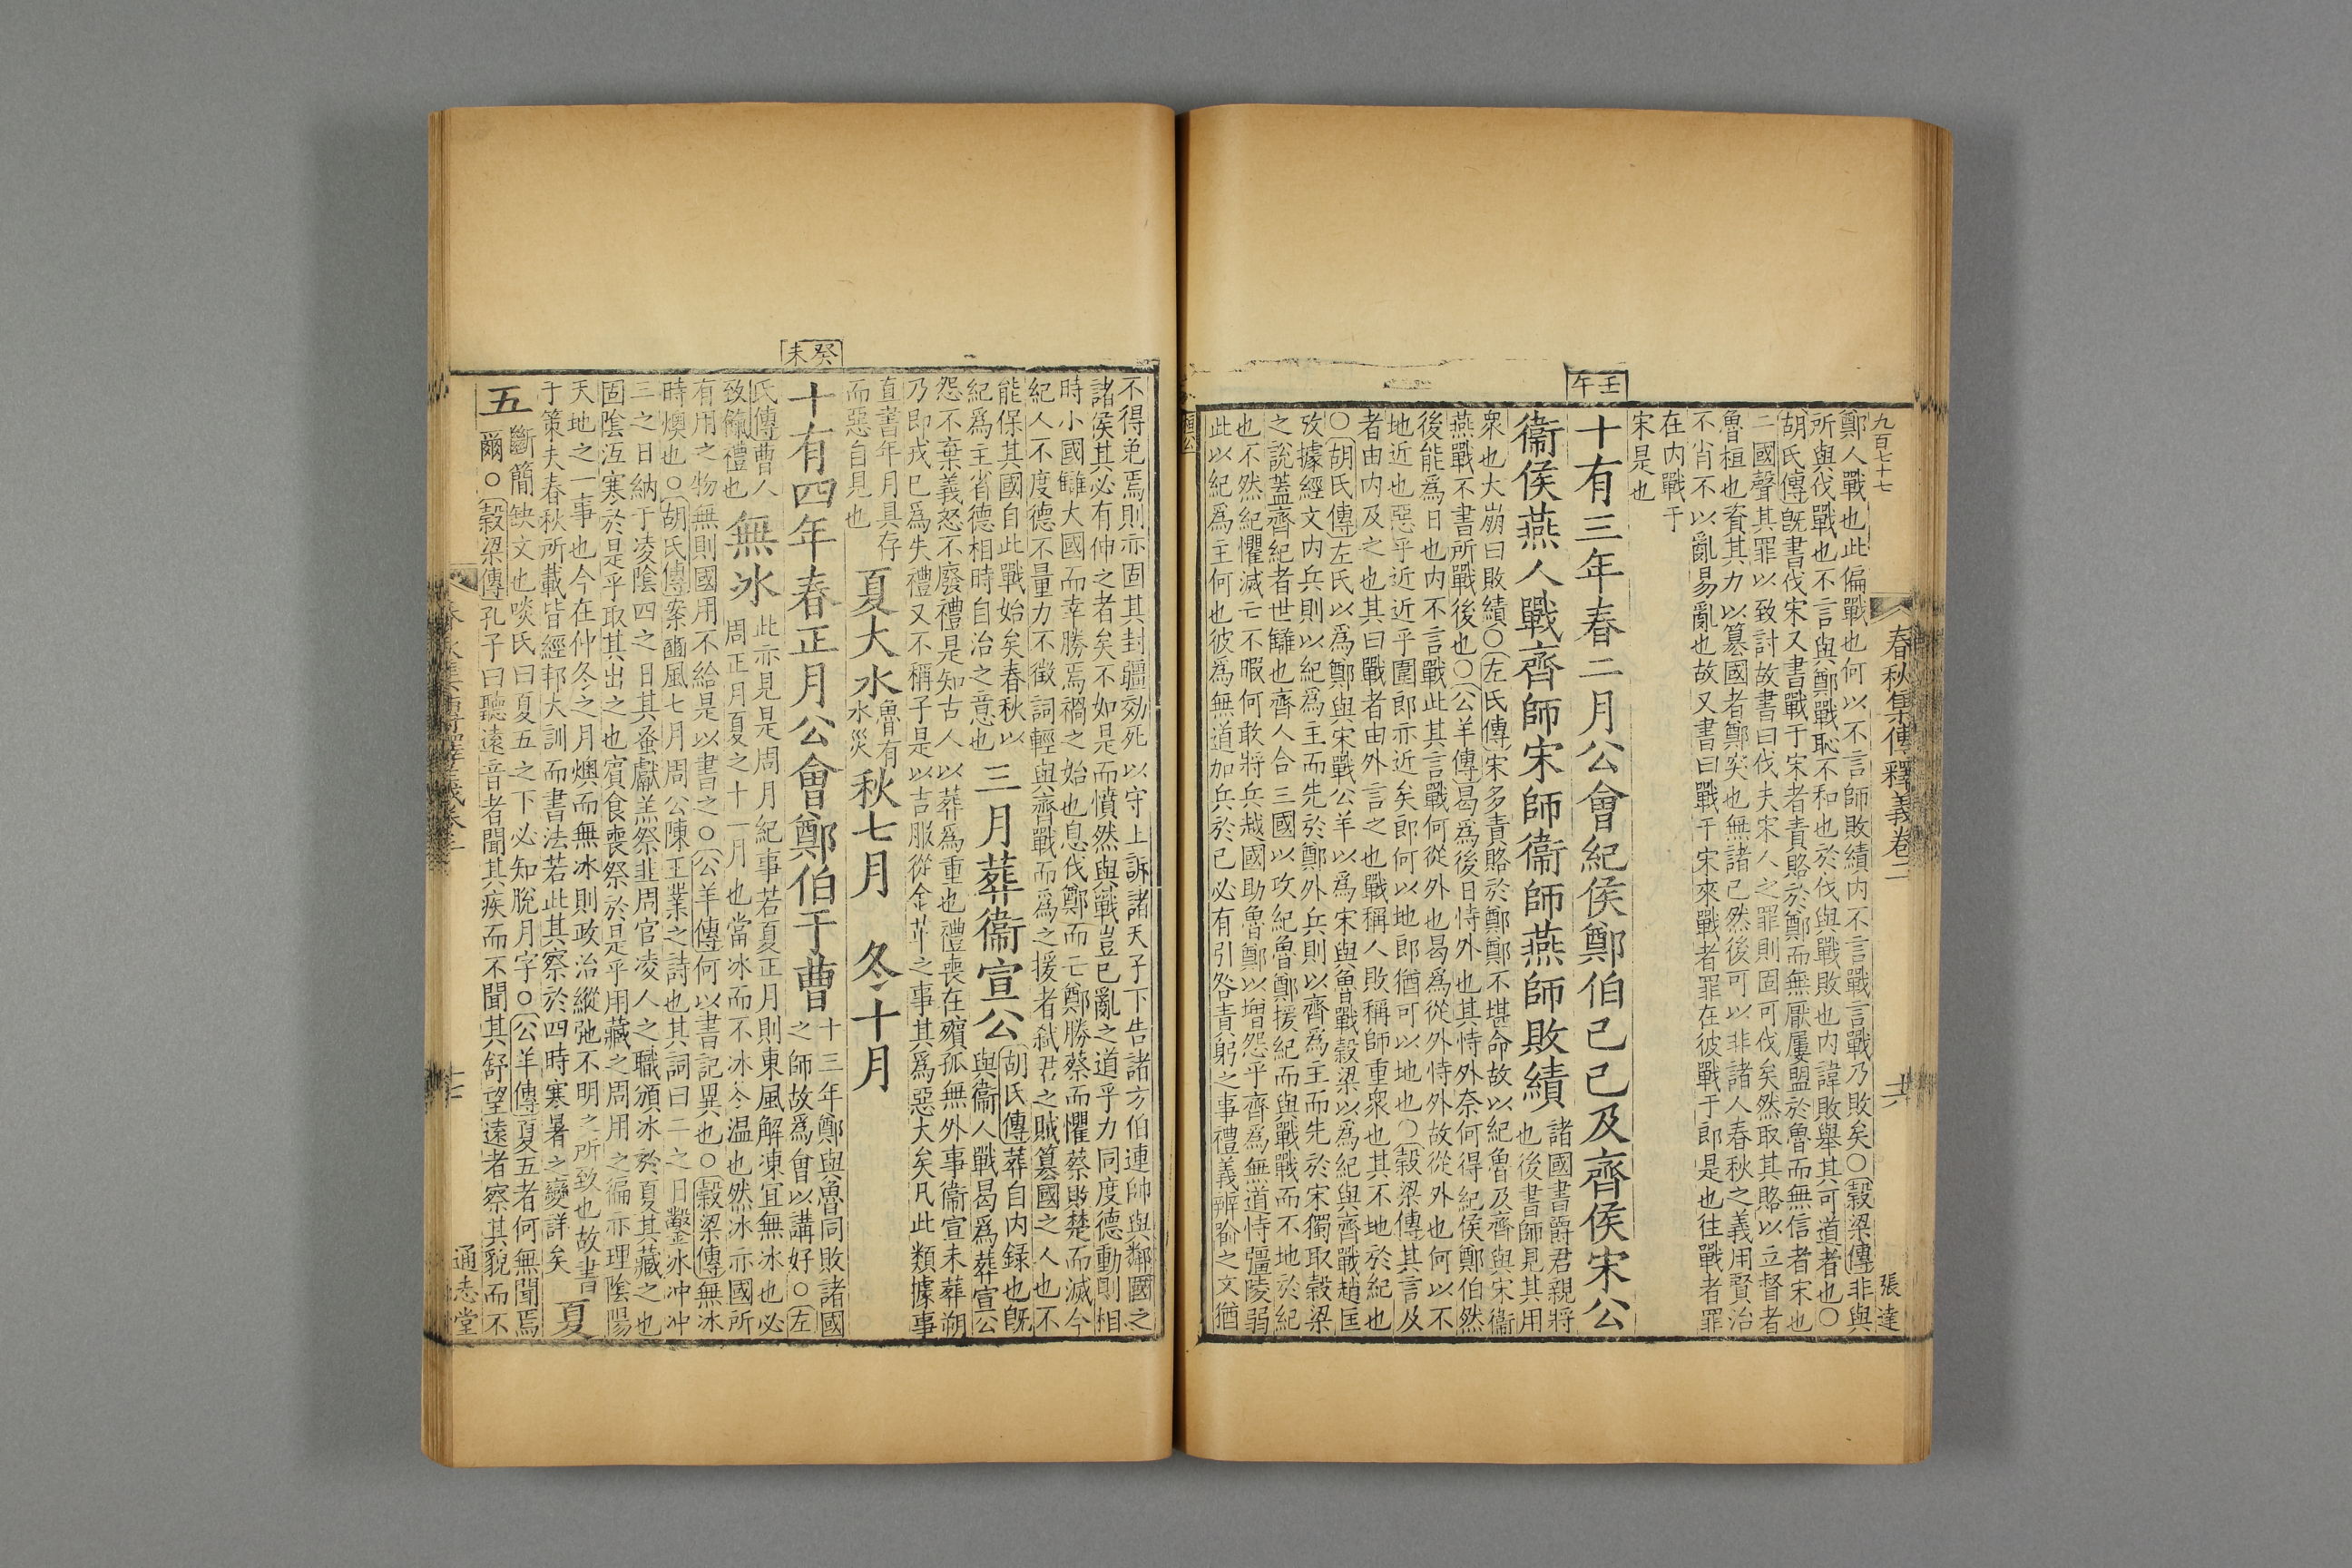 九百七十七
春秋集傳釋義卷二
張達
鄭人戰也此偏戰也何以不言師敗績内不言戰言戰乃敗矣○穀梁傳非與
所與伐戰也不言與鄭戰恥不和也於伐與戰敗也内諱敗舉其可道者也○
胡氏傳旣書伐宋又書戰于宋者責賂於鄭而無厭屢盟於魯而無信者宋也
二國聲其罪以致討故書曰伐夫宋人之罪則固可伐矣然取其賂以立督者
魯桓也資其力以簒國者鄭突也無諸已然後可以非諸人春秋之義用賢治
不肖不以亂易亂也故又書曰戰于宋來戰者罪在彼戰于郎是也往戰者罪
在内戰于
宋是也
壬午
十有三年春二月公會紀侯鄭伯己巳及齊侯宋公
衞侯燕人戰齊師宋師衞師燕師敗績
諸國書爵君親將
也後書師見其用
衆也大崩曰敗績○左氏傳宋多責賂於鄭鄭不堪命故以紀魯及齊與宋衞
燕戰不書所戰後也○公羊傳曷爲後日恃外也其恃外奈何得紀侯鄭伯然
後能爲日也内不言戰此其言戰何從外也曷爲從外恃外故從外也何以不
地近也惡乎近近乎圍郎亦近矣郎何以地郎猶可以地也○穀梁傳其言及
者由内及之也其曰戰者由外言之也戰稱人敗稱師重衆也其不地於紀也
○胡氏傳左氏以爲鄭與宋戰公羊以爲宋與魯戰穀梁以爲紀與齊戰趙匡
攷據經文内兵則以紀爲主而先於鄭外兵則以齊爲主而先於宋獨取穀梁
之說蓋齊紀者世讎也齊人合三國以攻紀魯鄭援紀而與戰戰而不地於紀
也不然紀懼滅亡不暇何敢將兵越國助魯鄭以增怨乎齊爲無道恃彊陵弱
此以紀爲主何也彼爲無道加兵於已必有引咎責躬之事禮義辨喻之文猶
不得免焉則亦固其封疆効死以守上訴諸天子下告諸方伯連帥與鄰國之
諸侯其必有伸之者矣不如是而憤然與戰豈已亂之道乎力同度德動則相
時小國讎大國而幸勝焉禍之始也息伐鄭而亡鄭勝蔡而懼蔡敗楚而滅今
紀人不度德不量力不徵詞輕與齊戰而爲之援者弑君之賊簒國之人也不
能保其國自此戰始矣春秋以
紀爲主省德相時自治之意也
三月葬衞宣公
胡氏傳葬自内録也旣
與衞人戰曷爲葬宣公
怨不棄義怒不廢禮是知古人以葬爲重也禮喪在殯孤無外事衞宣未葬朔
乃即戎已爲失禮又不稱子是以吉服從金革之事其爲惡大矣凡此類據事
直書年月具存
而惡自見也
夏大水
魯有
水災
秋七月　冬十月
癸未
十有四年春正月公會鄭伯于曹
十三年鄭與魯同敗諸國
之師故爲會以講好○左
氏傳曹人
致餼禮也
無冰
此亦見是周月紀事若夏正月則東風解凍宜無冰也必
周正月夏之十一月也當冰而不冰冬温也然冰亦國所
有用之物無則國用不給是以書之○公羊傳何以書記異也○穀梁傳無冰
時燠也○胡氏傳案豳風七月周公陳王業之詩也其詞曰二之日鑿冰冲冲
三之日納于凌陰四之日其蚤獻羔祭韭周官凌人之職頒冰於夏其藏之也
固陰沍寒於是乎取其出之也賓食喪祭於是乎用藏之周用之徧亦理陰陽
天地之一事也今在仲冬之月燠而無冰則政治縱弛不明之所致也故書
于策夫春秋所載皆經邦大訓而書法若此其察於四時寒暑之變詳矣
夏
五
斷簡缺文也啖氏曰夏五之下必知脫月字○公羊傳夏五者何無聞焉
爾○穀梁傳孔子曰聽遠音者聞其疾而不聞其舒望遠者察其貌而不
通志堂